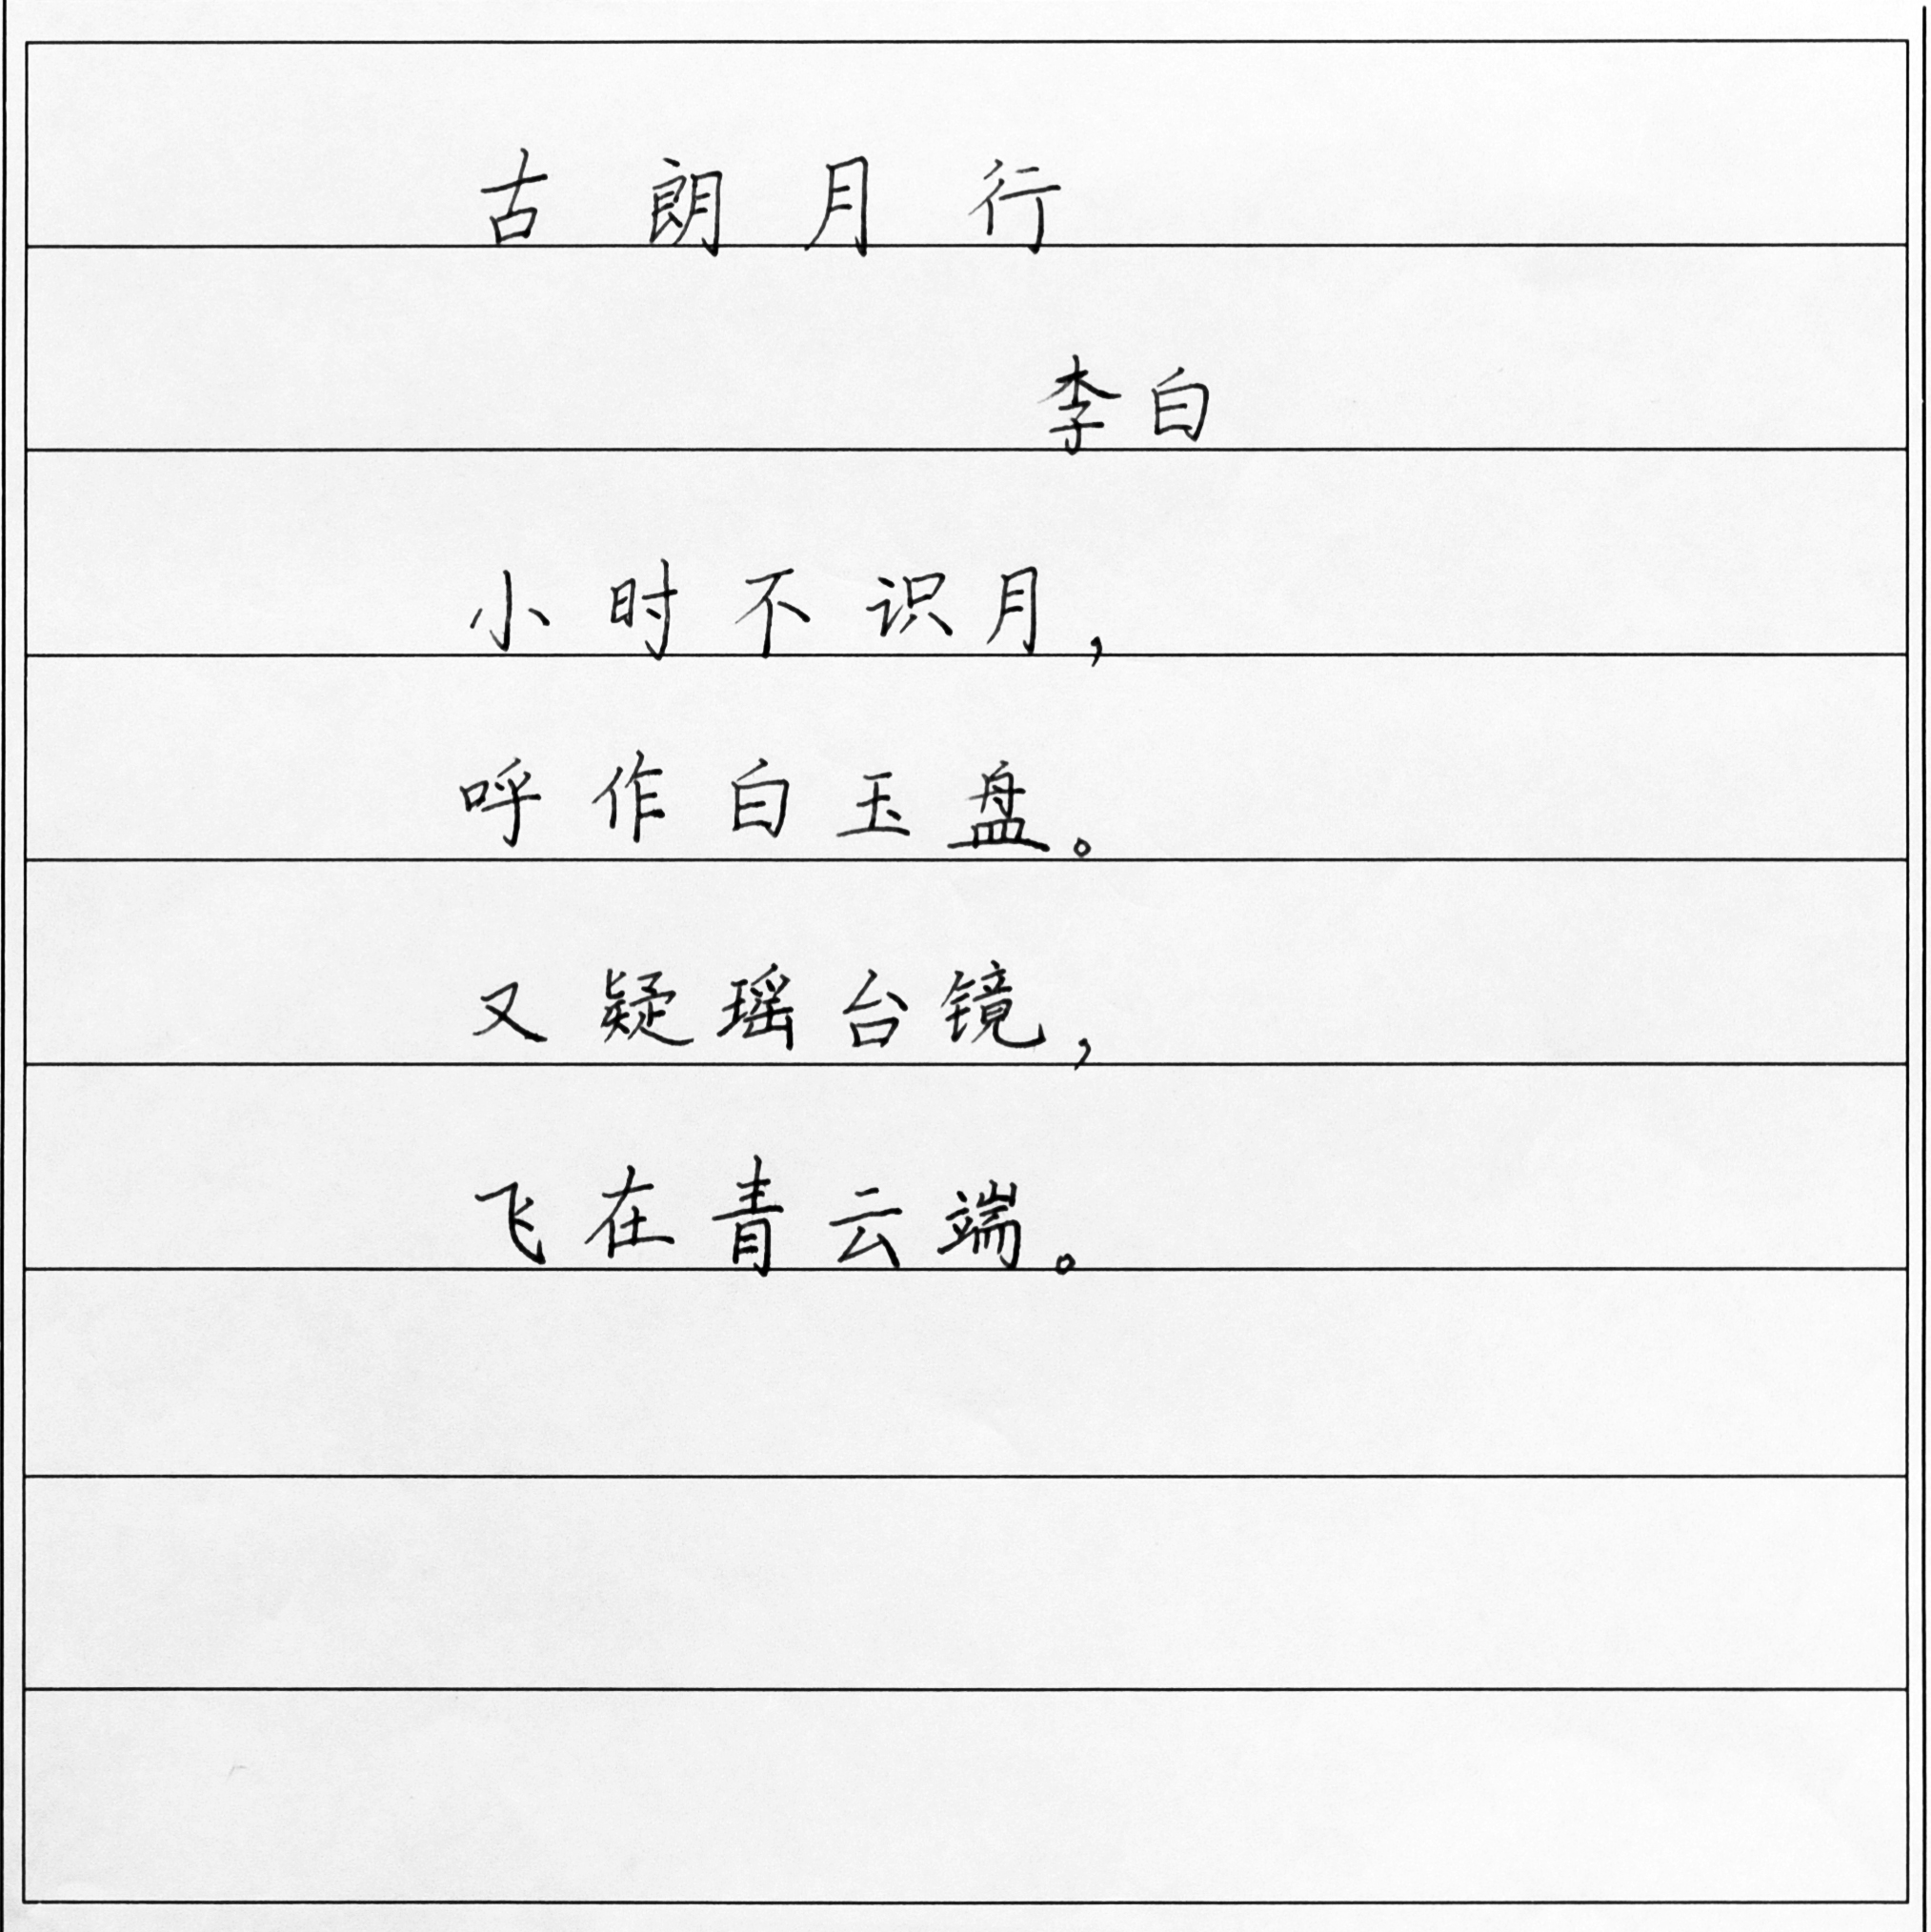 古朗月行
李白
小时不识月,
呼作白玉盘。
又疑瑶台镜,
飞在青云端。